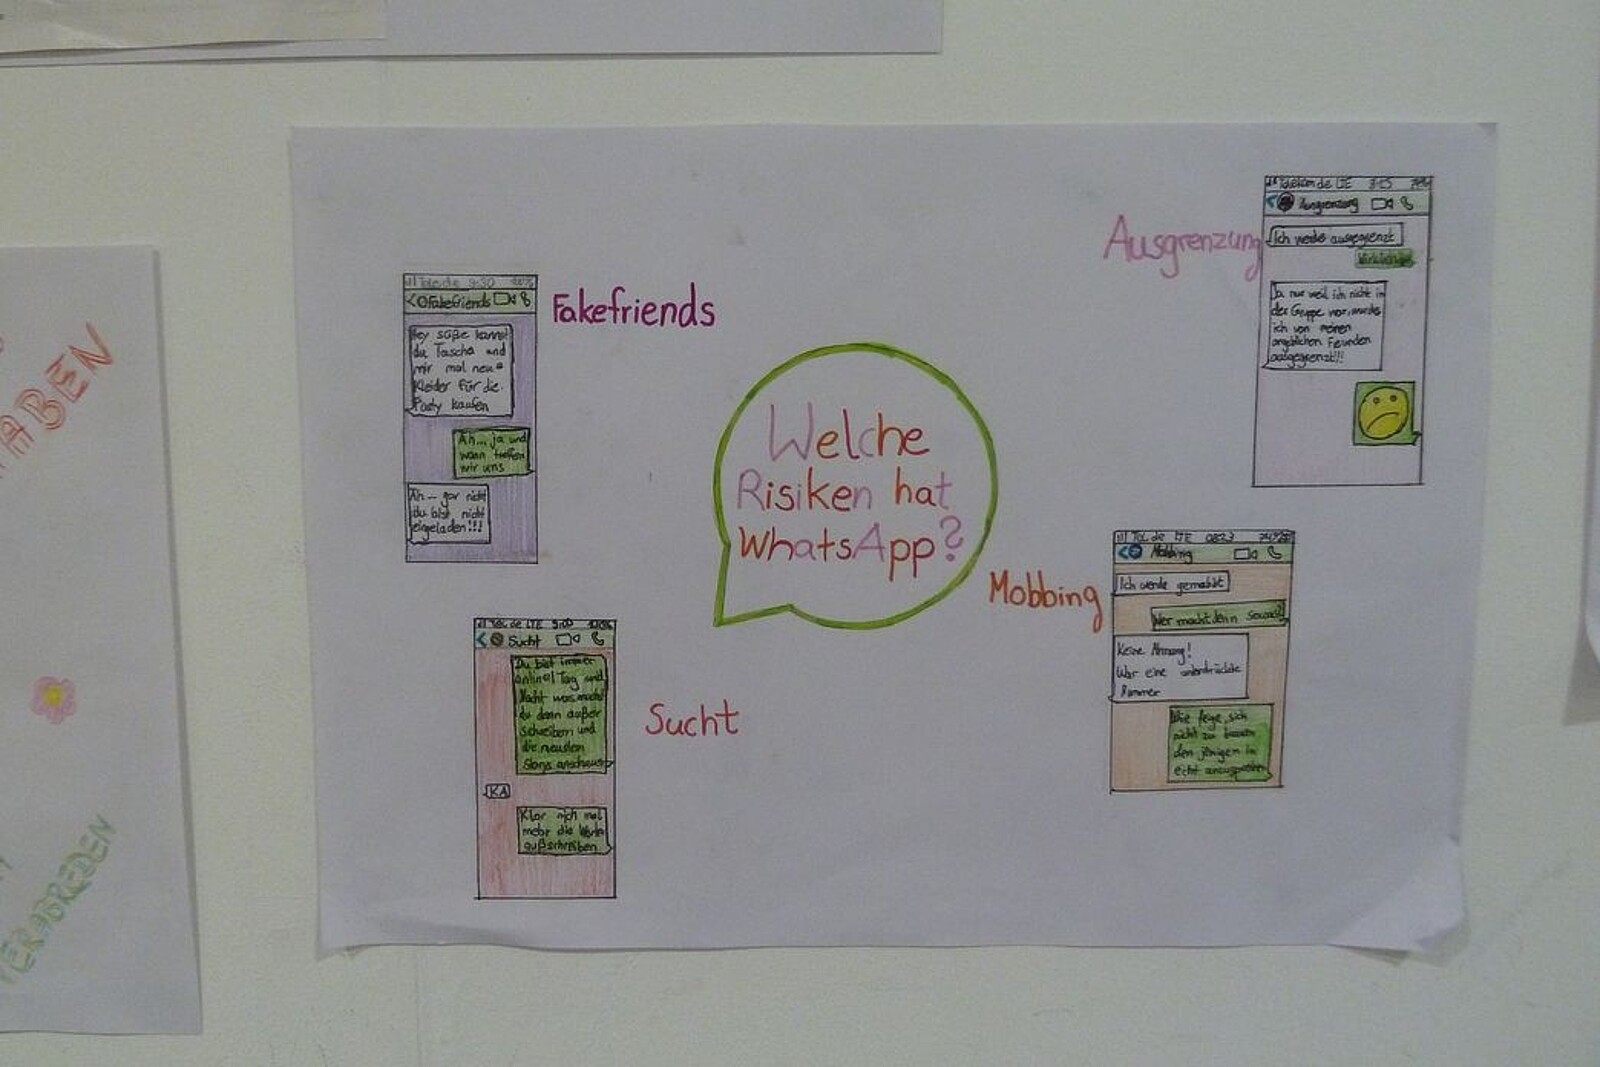 ABEN
VERABREDEN
Welche
Risiken hat
WhatsApp?
Fakefriends
Tel.de 9:30
Fakefriends
Hey süße kannst
du Tascha und
mir mal neue
Kleider für die
Party kaufen
Äh... ja und
wann treffen
wir uns
Äh... gar nicht
du bist nicht
eingeladen!!!
Ausgrenzung
Telekom.de LTE
Ausgrenzung
Ich werde ausgegrenzt
Ja nur weil ich nicht in
der Gruppe war, wurde
ich von meinen
angeblichen Freunden
ausgegrenzt!!!
Sucht
Tel.de LTE 9:00
Sucht
Du bist immer
online! Tag und
Nacht was machst
du dann außer
schreiben und
die neusten
Storys anschauen
KA
Klar nich mal
mehr die Wörter
außschreiben
Mobbing
Tel.de LTE 0823
Mobbing
Ich werde gemobbt
Wer macht denn sowas?
Keine Ahnung!
War eine unterdrückte
Nummer
Wie feige, sich
nicht zu trauen
den jenigen in
echt anzusprechen